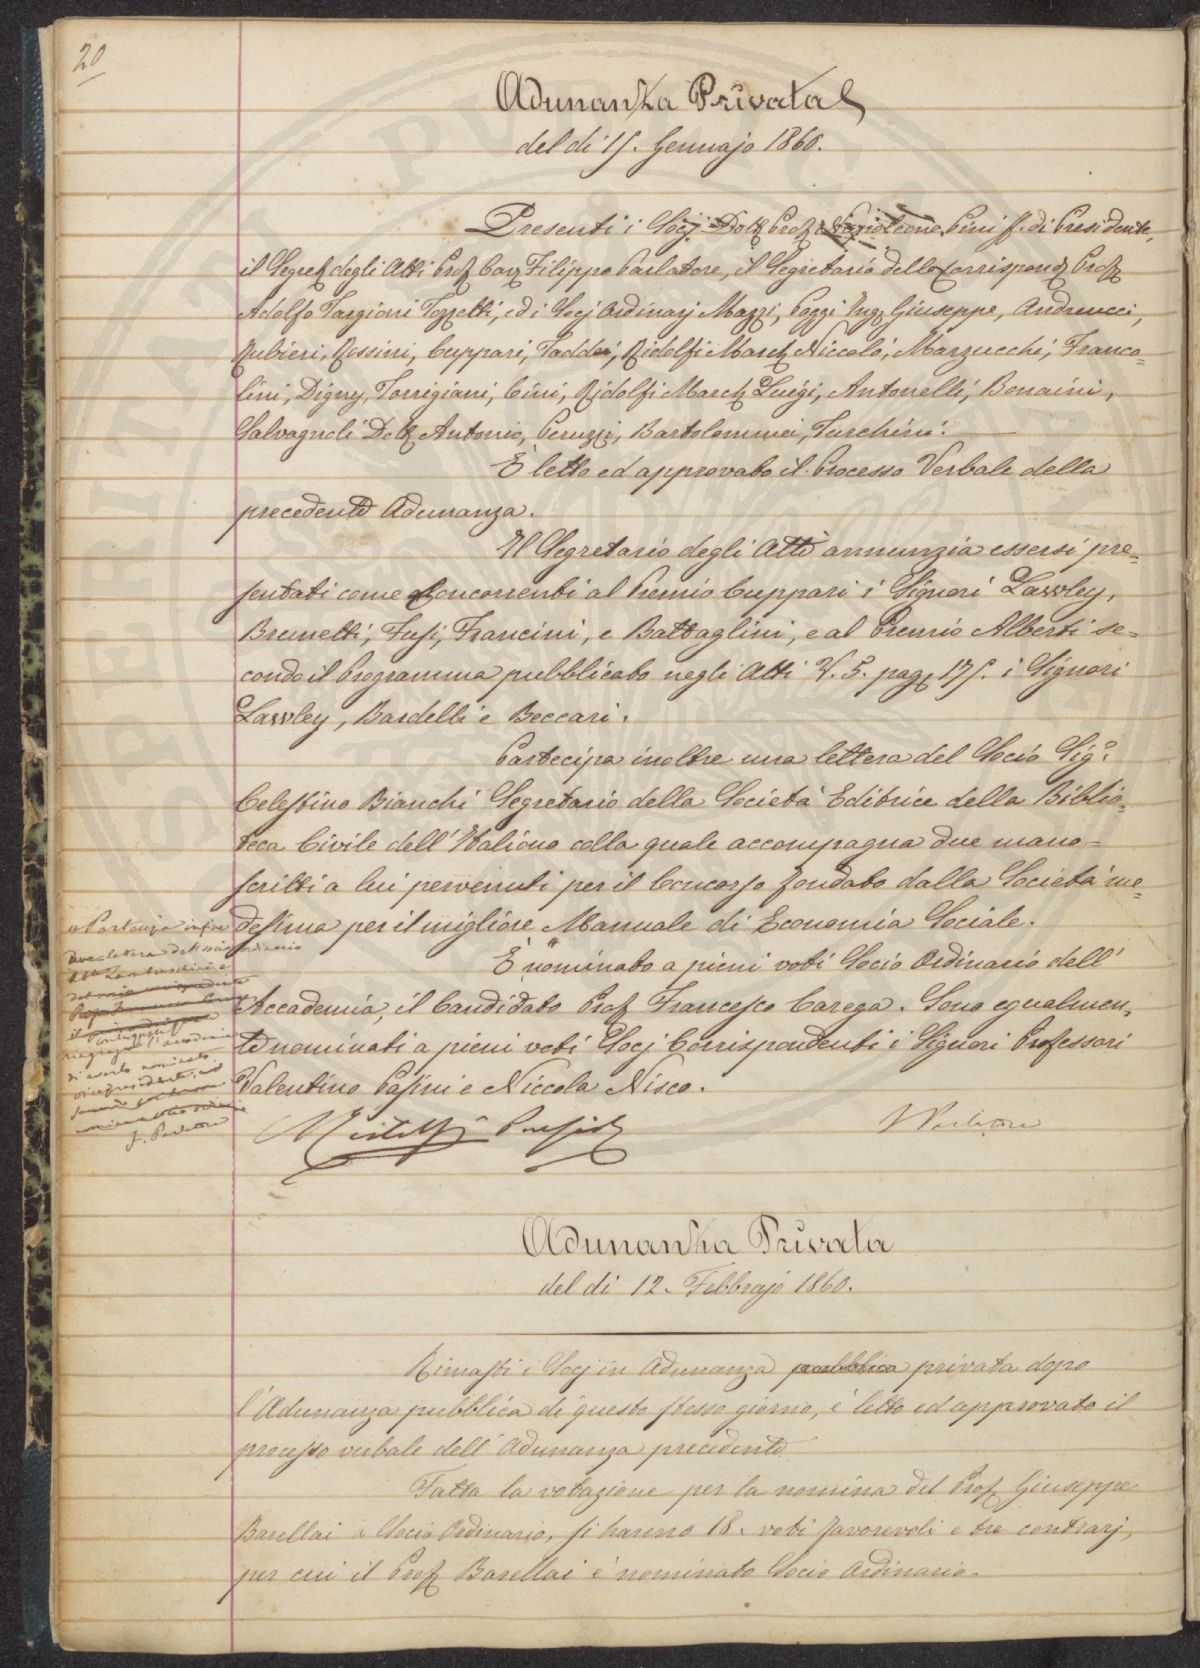 20
Adunanza Privata
del dì 15. Gennajo 1860.
Presenti i Socj Dott. Prof. Napoleone Pini ff. di Presidente,
il Segret. degli Atti Prof. Cav. Filippo Parlatore, il Segretario delle Corrispond. Prof.
Adolfo Targioni Tozzetti, ed i Socj Ordinarj Mazzi, Poggi Ing. Giuseppe, Andreucci,
Rubieri, Rossini, Cuppari, Taddei, Ridolfi March. Niccolò, Marzucchi, Franco=
lini, Digny, Torrigiani, Cini, Ridolfi March. Luigi, Antonelli, Bonaini,
Salvagnoli Dott. Antonio, Peruzzi, Bartolommei, Turchini.
È letto ed approvato il Processo Verbale della
precedente Adunanza.
Il Segretario degli Atti annunzia essersi pre=
sentati come Concorrenti al Premio Cuppari i Signori Lawley,
Brunetti, Fusi, Francini, e Battaglini, e al Premio Alberti se=
condo il Programma pubblicato negli Atti V. 5. pag. 175. i Signori
Lawley, Bardelli e Beccari.
Partecipa inoltre una lettera del Socio Sig.
Celestino Bianchi Segretario della Società Editrice della Biblio=
teca Civile dell'Italiano colla quale accompagna due mano=
scritti a lui pervenuti per il Concorso fondato dalla Società me=
desima per il migliore Manuale di Economia Sociale.
È nominato a pieni voti Socio Ordinario dell'
Accademia, il Candidato Prof. Francesco Carega. Sono egualmen=
te nominati a pieni voti Socj Corrispondenti i Signori Professori
Valentino Pasini e Niccola Nisco.
Partecipa infine
una lettera del socio ordinario
Lambruschini
ringrazia l'accademia
di averlo nominato
vicepresidente
F. Parlatore
Ridolfi Presid.
Parlatore
Adunanza Privata
del dì 12. Febbrajo 1860.
Rimasti i Socj in Adunanza pubblica privata dopo
l'Adunanza pubblica di questo stesso giorno, è letto ed approvato il
processo verbale dell'Adunanza precedente.
Fatta la votazione per la nomina del Prof. Giuseppe
Barellai a Socio Ordinario, si hanno 18. voti favorevoli e tre contrarj,
per cui il Prof. Barellai è nominato Socio Ordinario.